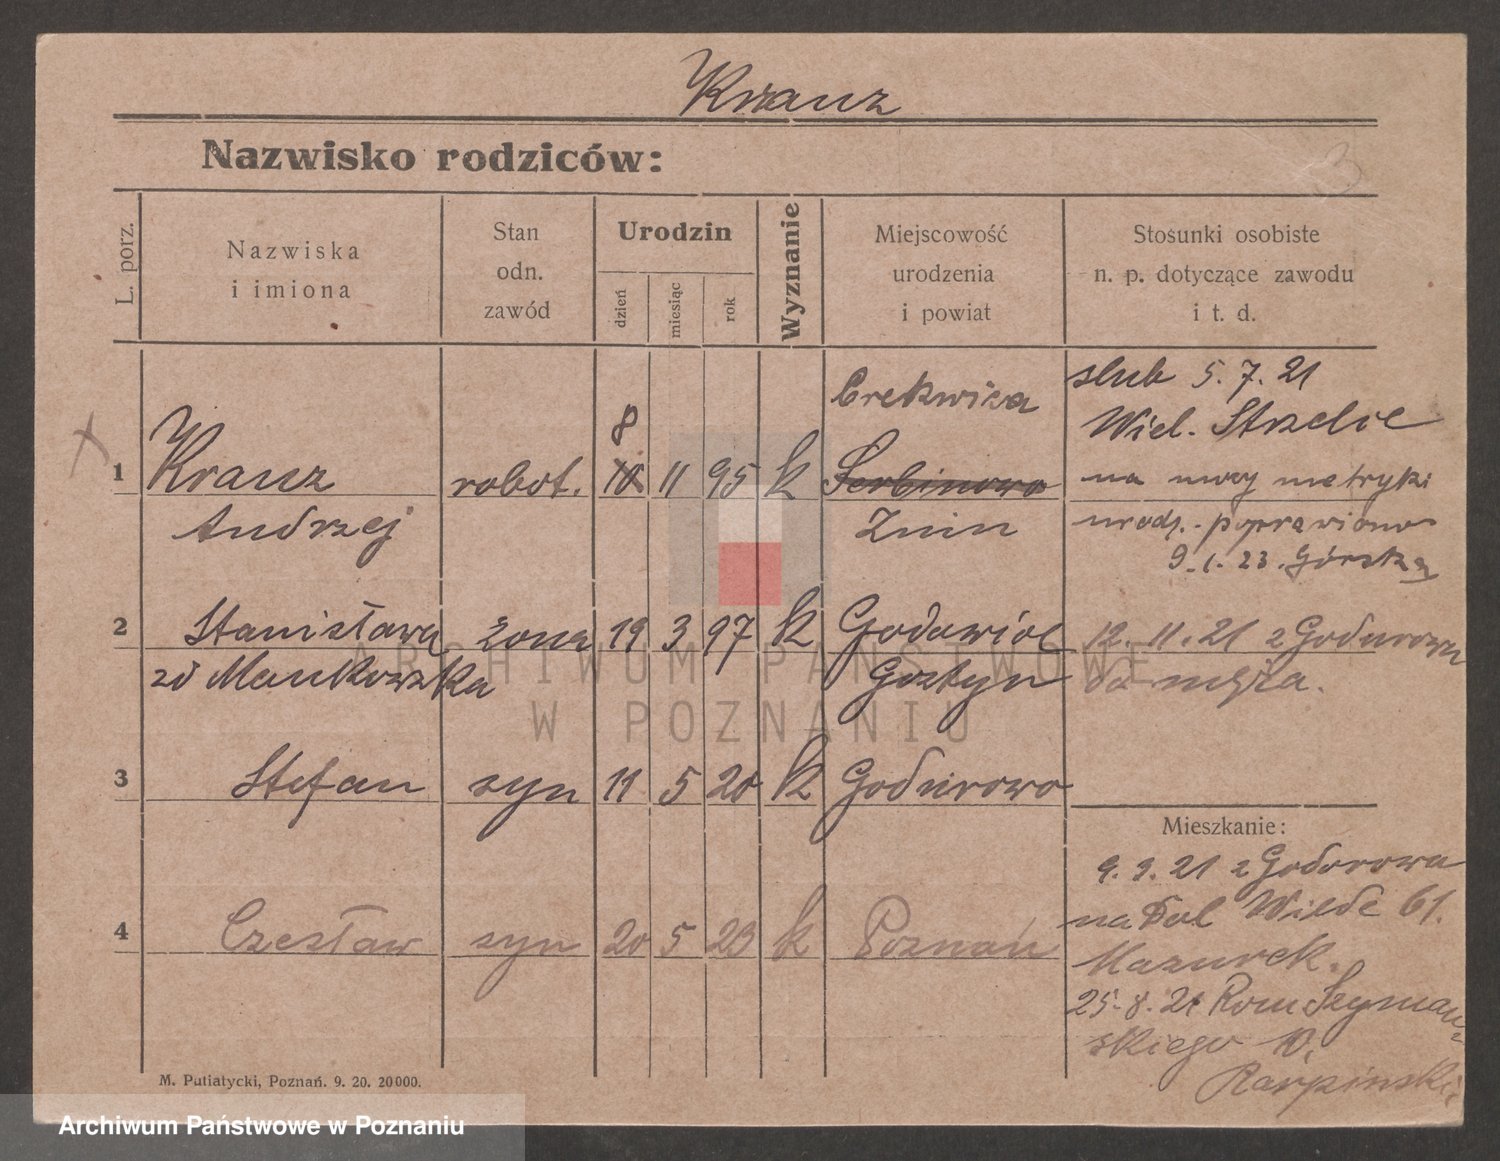 Kranz
Nazwisko rodziców:
L. porz.
Nazwiska
i imiona
Stan
odn.
zawód
Urodzin
dzień
miesiąc
rok
Wyznanie
Miejscowość
urodzenia
i powiat
Stosunki osobiste
n. p. dotyczące zawodu
i t. d.
1
Kranz
Andrzej
robot.
8
10
11
95
k
Cerekwica
Serbinowo
Znin
slub 5.7.21
Wiel. Strzelce
na mocy metryki
urodz. poprawiono
9.1.23. Górska
2
Stanisława
zd Mankowska
żona
19
3
97
k
Gostyn
12.11.21 z Godurowa
do męża.
3
Stefan
syn
11
5
20
k
Godurowo
4
Czesław
syn
20
5
23
k
Poznań
Mieszkanie:
9.9.21 z Godorowa
na Dol Wilde 61.
Mazurek.
25.8.21 Rom Szymań
skiego 10.
Karpinski
M. Putiatycki, Poznań. 9. 20. 20000.
ARCHIWUM PAŃSTWOWE
W POZNANIU
Archiwum Państwowe w Poznaniu